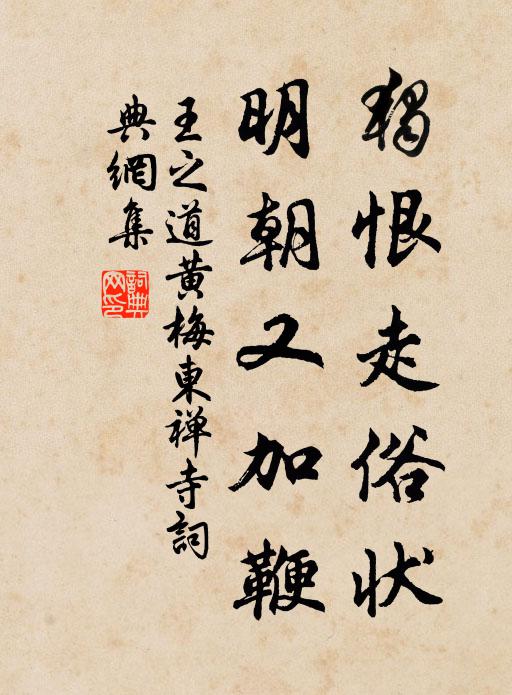 獨恨走俗状
明朝又加鞭
王之道黄梅東禅寺詞
典網集
詞典
网印